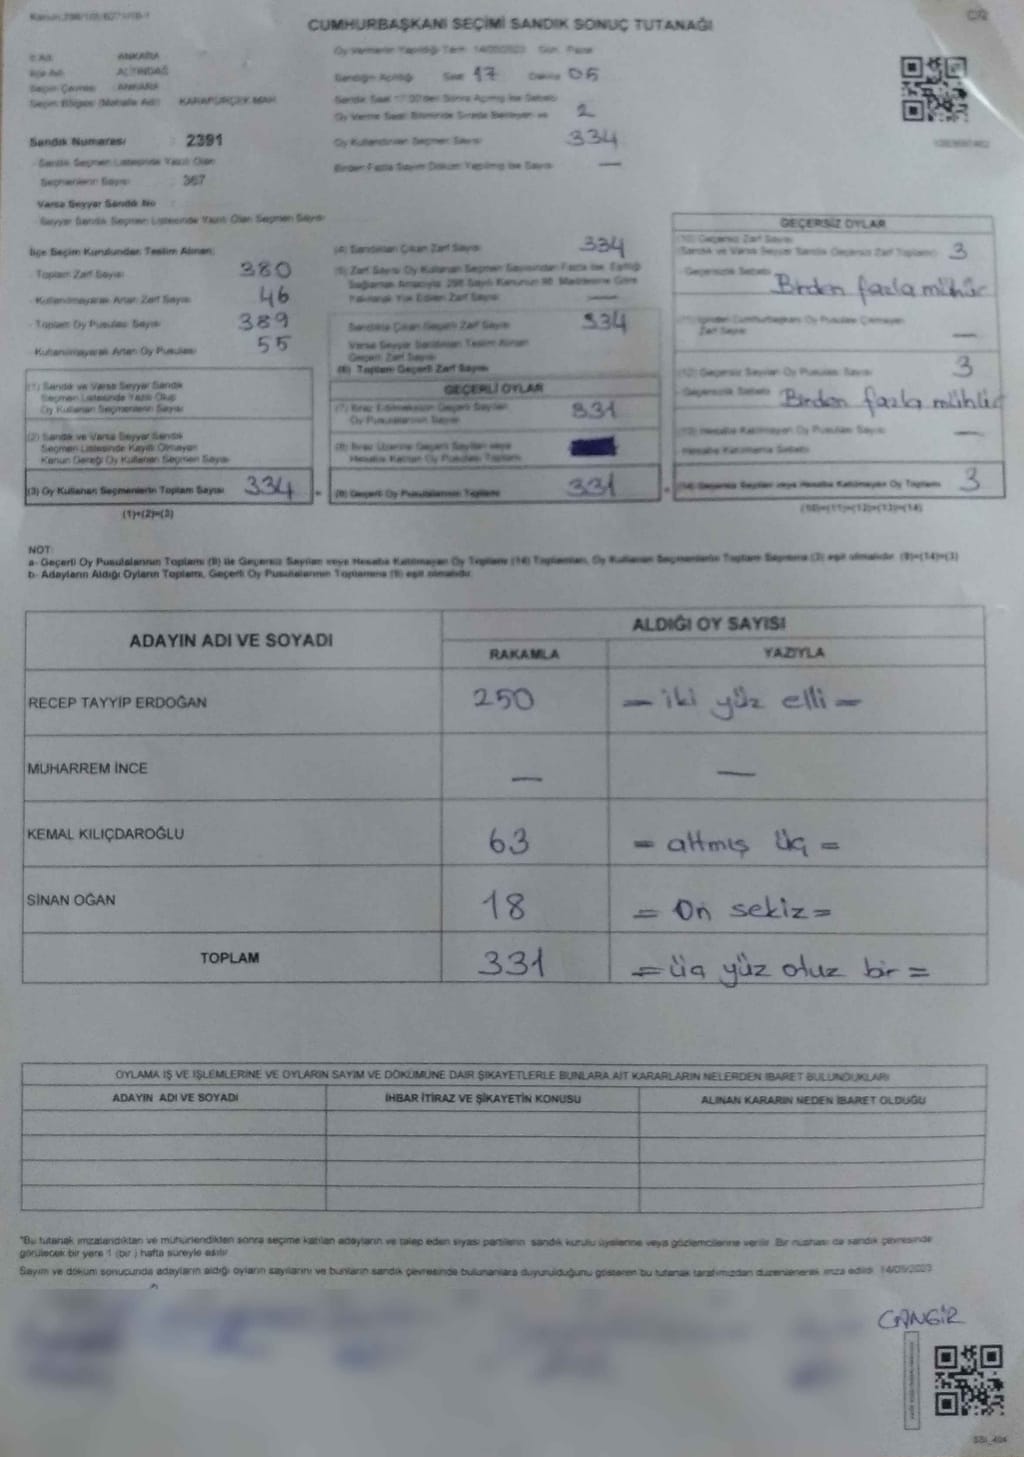 CUMHURBAŞKANI SEÇİMİ SANDIK SONUÇ TUTANAĞI
İl Adı ANKARA
İlçe Adı ALTINDAĞ
Seçim Çevresi ANKARA
Seçim Bölgesi (Mahalle Adı) KARAPÜRÇEK MAH.
Sandık Numarası : 2391
Sandık Seçmen Listesinde Yazılı Olan
Seçmenlerin Sayısı : 367
Varsa Seyyar Sandık No :
Seyyar Sandık Seçmen Listesinde Yazılı Olan Seçmen Sayısı
Oy Vermenin Yapıldığı Tarih 14/05/2023 Gün Pazar
Sandığın Açıldığı Saat 17 Dakika 05
Sandık Saat 17.00'den Sonra Açılmış İse Sebebi
Oy Verme Saati Bitiminde Sırada Bekleyen 2
Oy Kullandırılan Seçmen Sayısı 334
Birden Fazla Sayım Döküm Yapılmış İse Sayısı —
İlçe Seçim Kurulundan Teslim Alınan;
- Toplam Zarf Sayısı 380
- Kullanılmayarak Artan Zarf Sayısı 46
- Toplam Oy Pusulası Sayısı 389
- Kullanılmayarak Artan Oy Pusulası 55
(1) Sandık ve Varsa Seyyar Sandık
Seçmen Listesinde Yazılı Olup
Oy Kullanan Seçmenlerin Sayısı
(2) Sandık ve Varsa Seyyar Sandık
Seçmen Listesinde Kayıtlı Olmayan
Kanun Gereği Oy Kullanan Seçmen Sayısı
(3) Oy Kullanan Seçmenlerin Toplam Sayısı 334
(1)+(2)=(3)
(4) Sandıktan Çıkan Zarf Sayısı 334
(5) Zarf Sayısı Oy Kullanan Seçmen Sayısından Fazla İse, Eşitliği
Sağlamak Amacıyla 298 Sayılı Kanunun 98. Maddesine Göre
Yakılarak Yok Edilen Zarf Sayısı —
Sandıkta Çıkan Geçerli Zarf Sayısı 334
Varsa Seyyar Sandıktan Teslim Alınan
Geçerli Zarf Sayısı
(6) Toplam Geçerli Zarf Sayısı
GEÇERLİ OYLAR
(7) İtiraz Edilmeksizin Geçerli Sayılan
Oy Pusulalarının Sayısı 331
(8) İtiraz Üzerine Geçerli Sayılan veya
Hesaba Katılan Oy Pusulası Toplamı
(9) Geçerli Oy Pusulalarının Toplamı 331
GEÇERSİZ OYLAR
(10) Geçersiz Zarf Sayısı
(Sandık ve Varsa Seyyar Sandık Geçersiz Zarf Toplamı) 3
Geçersizlik Sebebi Birden fazla mühür
(11) İçinden Cumhurbaşkanı Oy Pusulası Çıkmayan
Zarf Sayısı —
(12) Geçersiz Sayılan Oy Pusulası Sayısı 3
Geçersizlik Sebebi Birden fazla mühür
(13) Hesaba Katılmayan Oy Pusulası Sayısı —
Hesaba Katılmama Sebebi
(14) Geçersiz Sayılan veya Hesaba Katılmayan Oy Toplamı 3
(10)+(11)+(12)+(13)=(14)
NOT:
a- Geçerli Oy Pusulalarının Toplamı (9) ile Geçersiz Sayılan veya Hesaba Katılmayan Oy Toplamı (14) Toplamları, Oy Kullanan Seçmenlerin Toplam Sayısına (3) eşit olmalıdır. (9)+(14)=(3)
b- Adayların Aldığı Oyların Toplamı, Geçerli Oy Pusulalarının Toplamına (9) eşit olmalıdır.
ADAYIN ADI VE SOYADI
ALDIĞI OY SAYISI
RAKAMLA YAZIYLA
RECEP TAYYİP ERDOĞAN 250 — iki yüz elli —
MUHARREM İNCE — —
KEMAL KILIÇDAROĞLU 63 = altmış üç =
SİNAN OĞAN 18 = On sekiz =
TOPLAM 331 = üç yüz otuz bir =
OYLAMA İŞ VE İŞLEMLERİNE VE OYLARIN SAYIM VE DÖKÜMÜNE DAİR ŞİKAYETLERLE BUNLARA AİT KARARLARIN NELERDEN İBARET BULUNDUKLARI
ADAYIN ADI VE SOYADI İHBAR İTİRAZ VE ŞİKAYETİN KONUSU ALINAN KARARIN NEDEN İBARET OLDUĞU
*Bu tutanak imzalandıktan ve mühürlendikten sonra seçime katılan adayların ve talep eden siyasi partilerin sandık kurulu üyelerine veya gözlemcilerine verilir. Bir nüshası da sandık çevresinde
görülecek bir yere 1 (bir) hafta süreyle asılır.
Sayım ve döküm sonucunda adayların aldığı oyların sayılarını ve bunların sandık çevresinde bulunanlara duyurulduğunu gösteren bu tutanak tarafımızdan düzenlenerek imza edildi. 14/05/2023
CANGİR